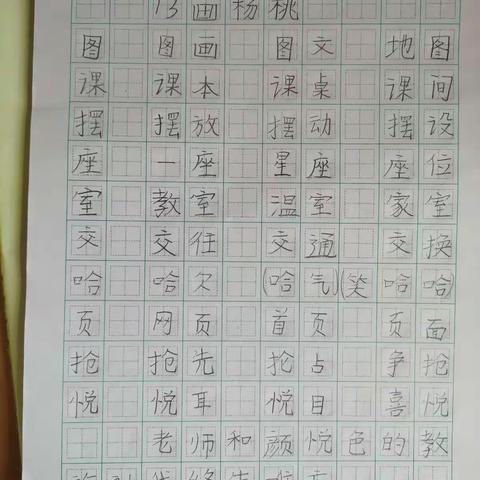 13画 杨桃
图 图画 图文 地图
课 课本 课桌 课间
摆 摆放 摆动 摆设
座 一座 星座 座位
室 教室 温室 家室
交 交往 交通 交换
哈 哈欠 (哈气)(笑哈哈)
页 网页 首页 页面
抢 抢先 抢占 争抢
悦 悦耳 悦目 喜悦
老师和颜悦色的教